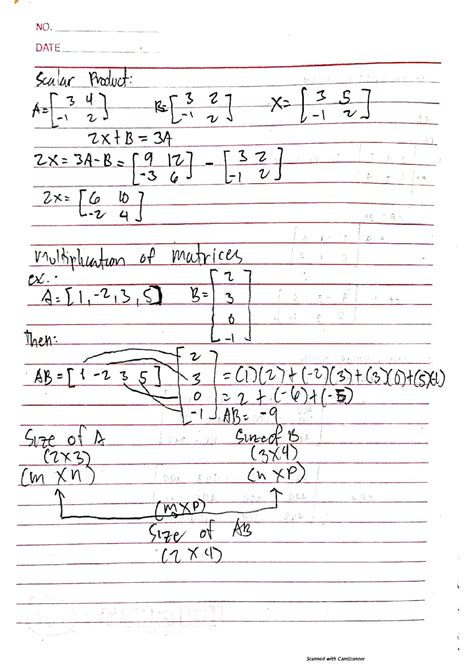 NO.
DATE
Scalar Product:
A=[3 4; -1 2] B=[3 2; -1 2] X=[3 5; -1 2]
2X+B = 3A
2X = 3A-B = [9 12; -3 6] - [3 2; -1 2]
2X= [6 10; -2 4]
Multiplication of matrices
ex.:
A=[1, -2, 3, 5] B=[2; 3; 0; -1]
Then:
AB=[1 -2 3 5] [2; 3; 0; -1] = (1)(2)+(-2)(3)+(3)(0)+(5)(-1)
= 2 + (-6) + (-5)
AB= -9
Size of A Size of B
(2X3) (3X4)
(m X n) (n X P)
(m X P)
Size of AB
(2 X 4)
Scanned with CamScanner